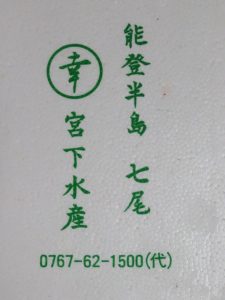 能登半島 七尾
幸 宮下水産
0767-62-1500(代)